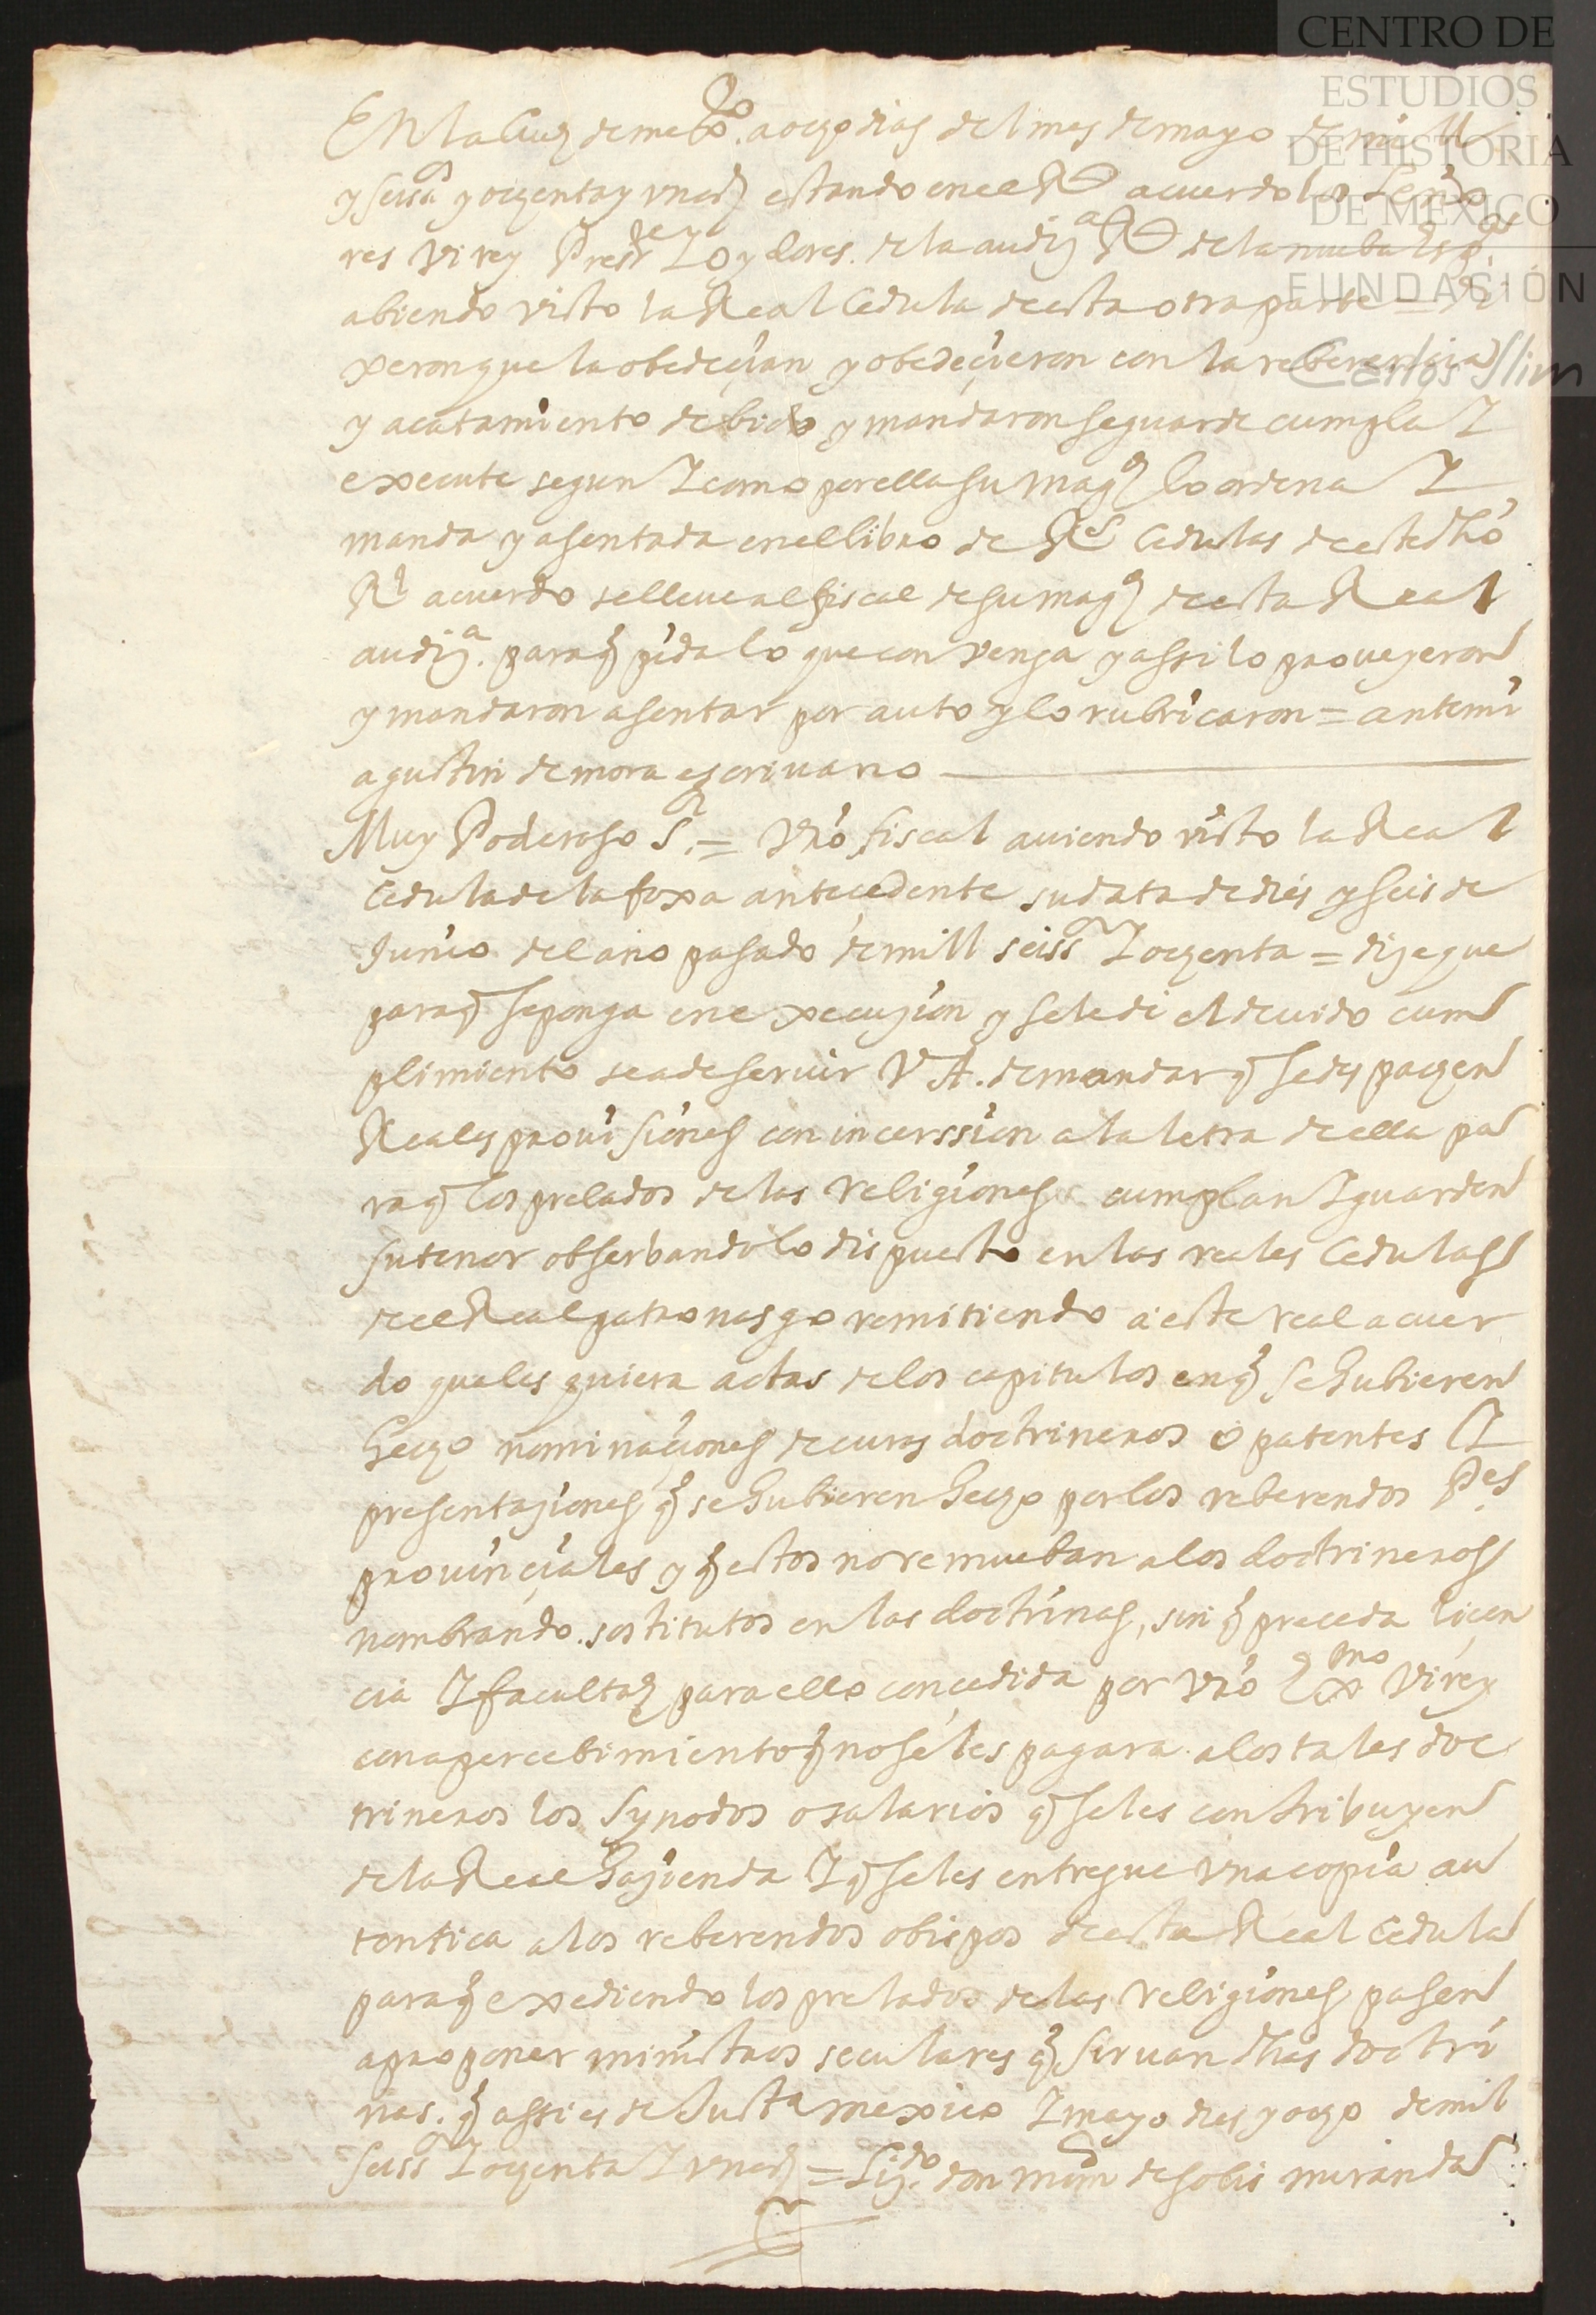 CENTRO DE
ESTUDIOS
DE HISTORIA
DE MÉXICO
FUNDACIÓN
Carlos Slim
En la Ciud de mexco. a ocho dias del mes de mayo de mill
y seisos y ochenta y un as estando en el Rl acuerdo los Seño
res Virey Presidte Y Oydores de la audia Rl de la nueba Espa
abiendo visto la Real Cedula de esta otra parte = di
xeron que la obedeçian y obedeçieron con la reberençia
y acatamiento debido y mandaron se guarde cumpla Y
execute segun Y como por ella su magd lo ordena Y
manda y asentada en el libro de Rs Cedulas de este dho
Rl acuerdo se lleue al fiscal de su magd de esta Real
audia. para q pida lo que conbenga y assi lo proueyeron
y mandaron asentar por auto y lo rubricaron = ante mi
agustin de mora escriuano
Muy Poderoso Sr = Vro fiscal auiendo visto la Real
Cedula de la foxa anteçedente su data de dies y seis de
Junio del año pasado de mill seiss Y ochenta = dije que
para q se ponga en execuçion y se le de el deuido cum
plimiento sea de seruir V A. de mandar q se despachen
Reales prouisiones con incerssion a la letra de ella pa
ra q los prelados de las Religiones cumplan Y guarden
su tenor obserbando lo dispuesto en las reales Cedulas
de el Real patronasgo remitiendo a este real acuer
do quales quiera actas de los capitulos en q se hubieren
hecho nominaçiones de curas doctrineros o patentes Y
presentaçiones q se hubieren hecho por los reberendos Pes
prouinçiales y q estos no remueban a los doctrineros
nombrando sostitutos en las doctrinas, sin q preceda liçen
cia Y facultad para ello conçedida por Vro Exmo Virey
con apercebimiento q no se les pagara a los tales doc
trineros los Synodos o salarios q se les contribuyen
de la Real haçienda Y q se les entregue una copia au
tentica a los reberendos obispos de esta Real Cedula
para q exediendo los prelados de las Religiones pasen
a proponer ministros seculares q siruan dhas doctri
nas. q assi es de Justa mexico Y mayo dies y ocho de mil
seiss Y ochenta Y un as = Lizdo. don mrn de solis miranda